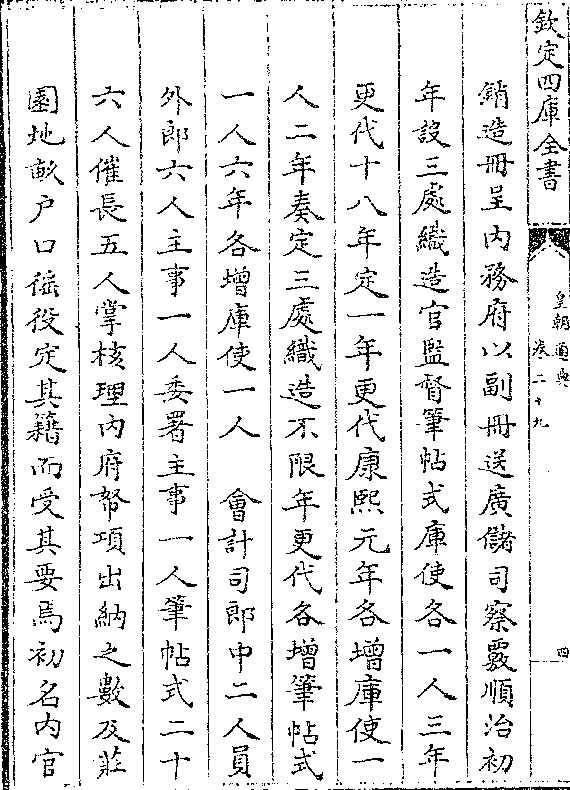 欽定四庫全書
皇朝通典
卷二十九
四
銷造冊呈內務府以副冊送廣儲司察覈順治初
年設三處織造官監督筆帖式庫使各一人三年
更代十八年定一年更代康熙元年各增庫使一
人二年奏定三處織造不限年更代各增筆帖式
一人六年各增庫使一人　會計司郎中二人員
外郎六人主事一人委署主事一人筆帖式二十
六人催長五人掌核理內府帑項出納之數及莊
園地畝户口徭役定其籍而受其要焉初名內官